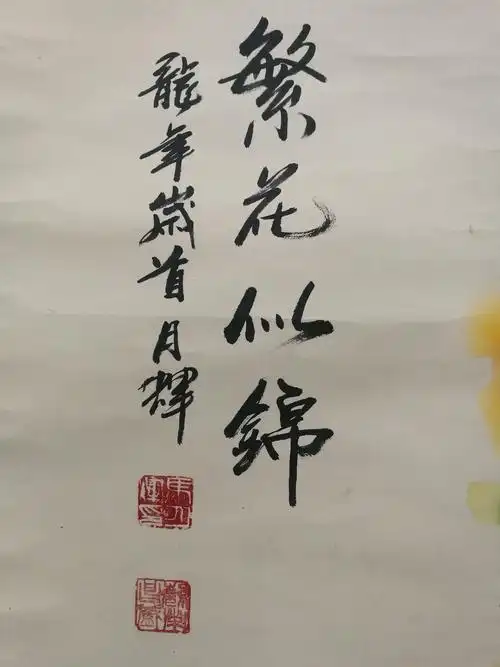 繁花似錦
龍年歲首月輝